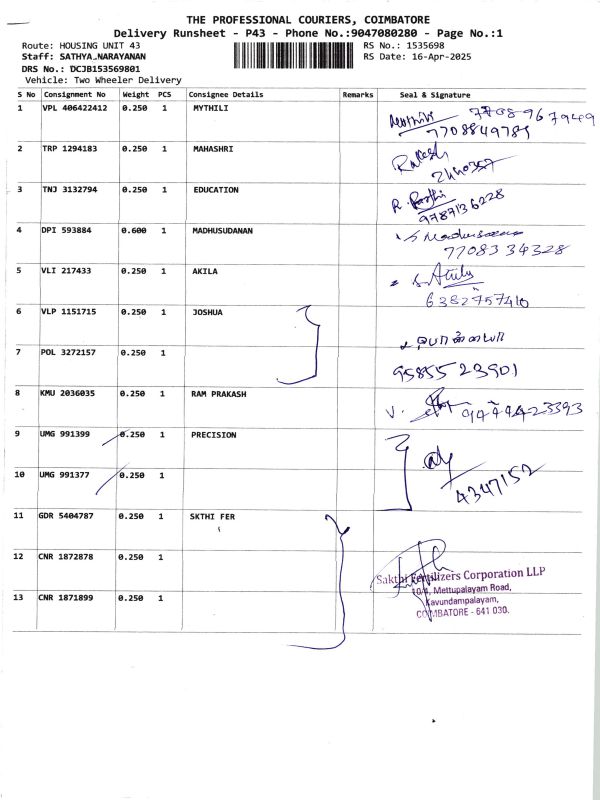 THE PROFESSIONAL COURIERS, COIMBATORE
Delivery Runsheet - P43 - Phone No.:9047080280 - Page No.:1
Route: HOUSING UNIT 43 RS No.: 1535698
Staff: SATHYA NARAYANAN RS Date: 16-Apr-2025
DRS No.: DCJB153569801
Vehicle: Two Wheeler Delivery
S No Consignment No Weight PCS Consignee Details Remarks Seal & Signature
1 VPL 406422412 0.250 1 MYTHILI
7708849789
2 TRP 1294183 0.250 1 MAHASHRI Rakesh
3 TNJ 3132794 0.250 1 EDUCATION
9787136228
4 DPI 593884 0.600 1 MADHUSUDANAN
77083 34328
5 VLI 217433 0.250 1 AKILA
6382757410
6 VLP 1151715 0.250 1 JOSHUA
7 POL 3272157 0.250 1
95855 23901
8 KMU 2036035 0.250 1 RAM PRAKASH
9 UMG 991399 0.250 1 PRECISION
10 UMG 991377 0.250 1
4347152
11 GDR 5404787 0.250 1 SKTHI FER
12 CNR 1872878 0.250 1
Sakthi Fertilizers Corporation LLP
13 CNR 1871899 0.250 1
10/4, Mettupalayam Road,
Kavundampalayam,
COIMBATORE - 641 030.